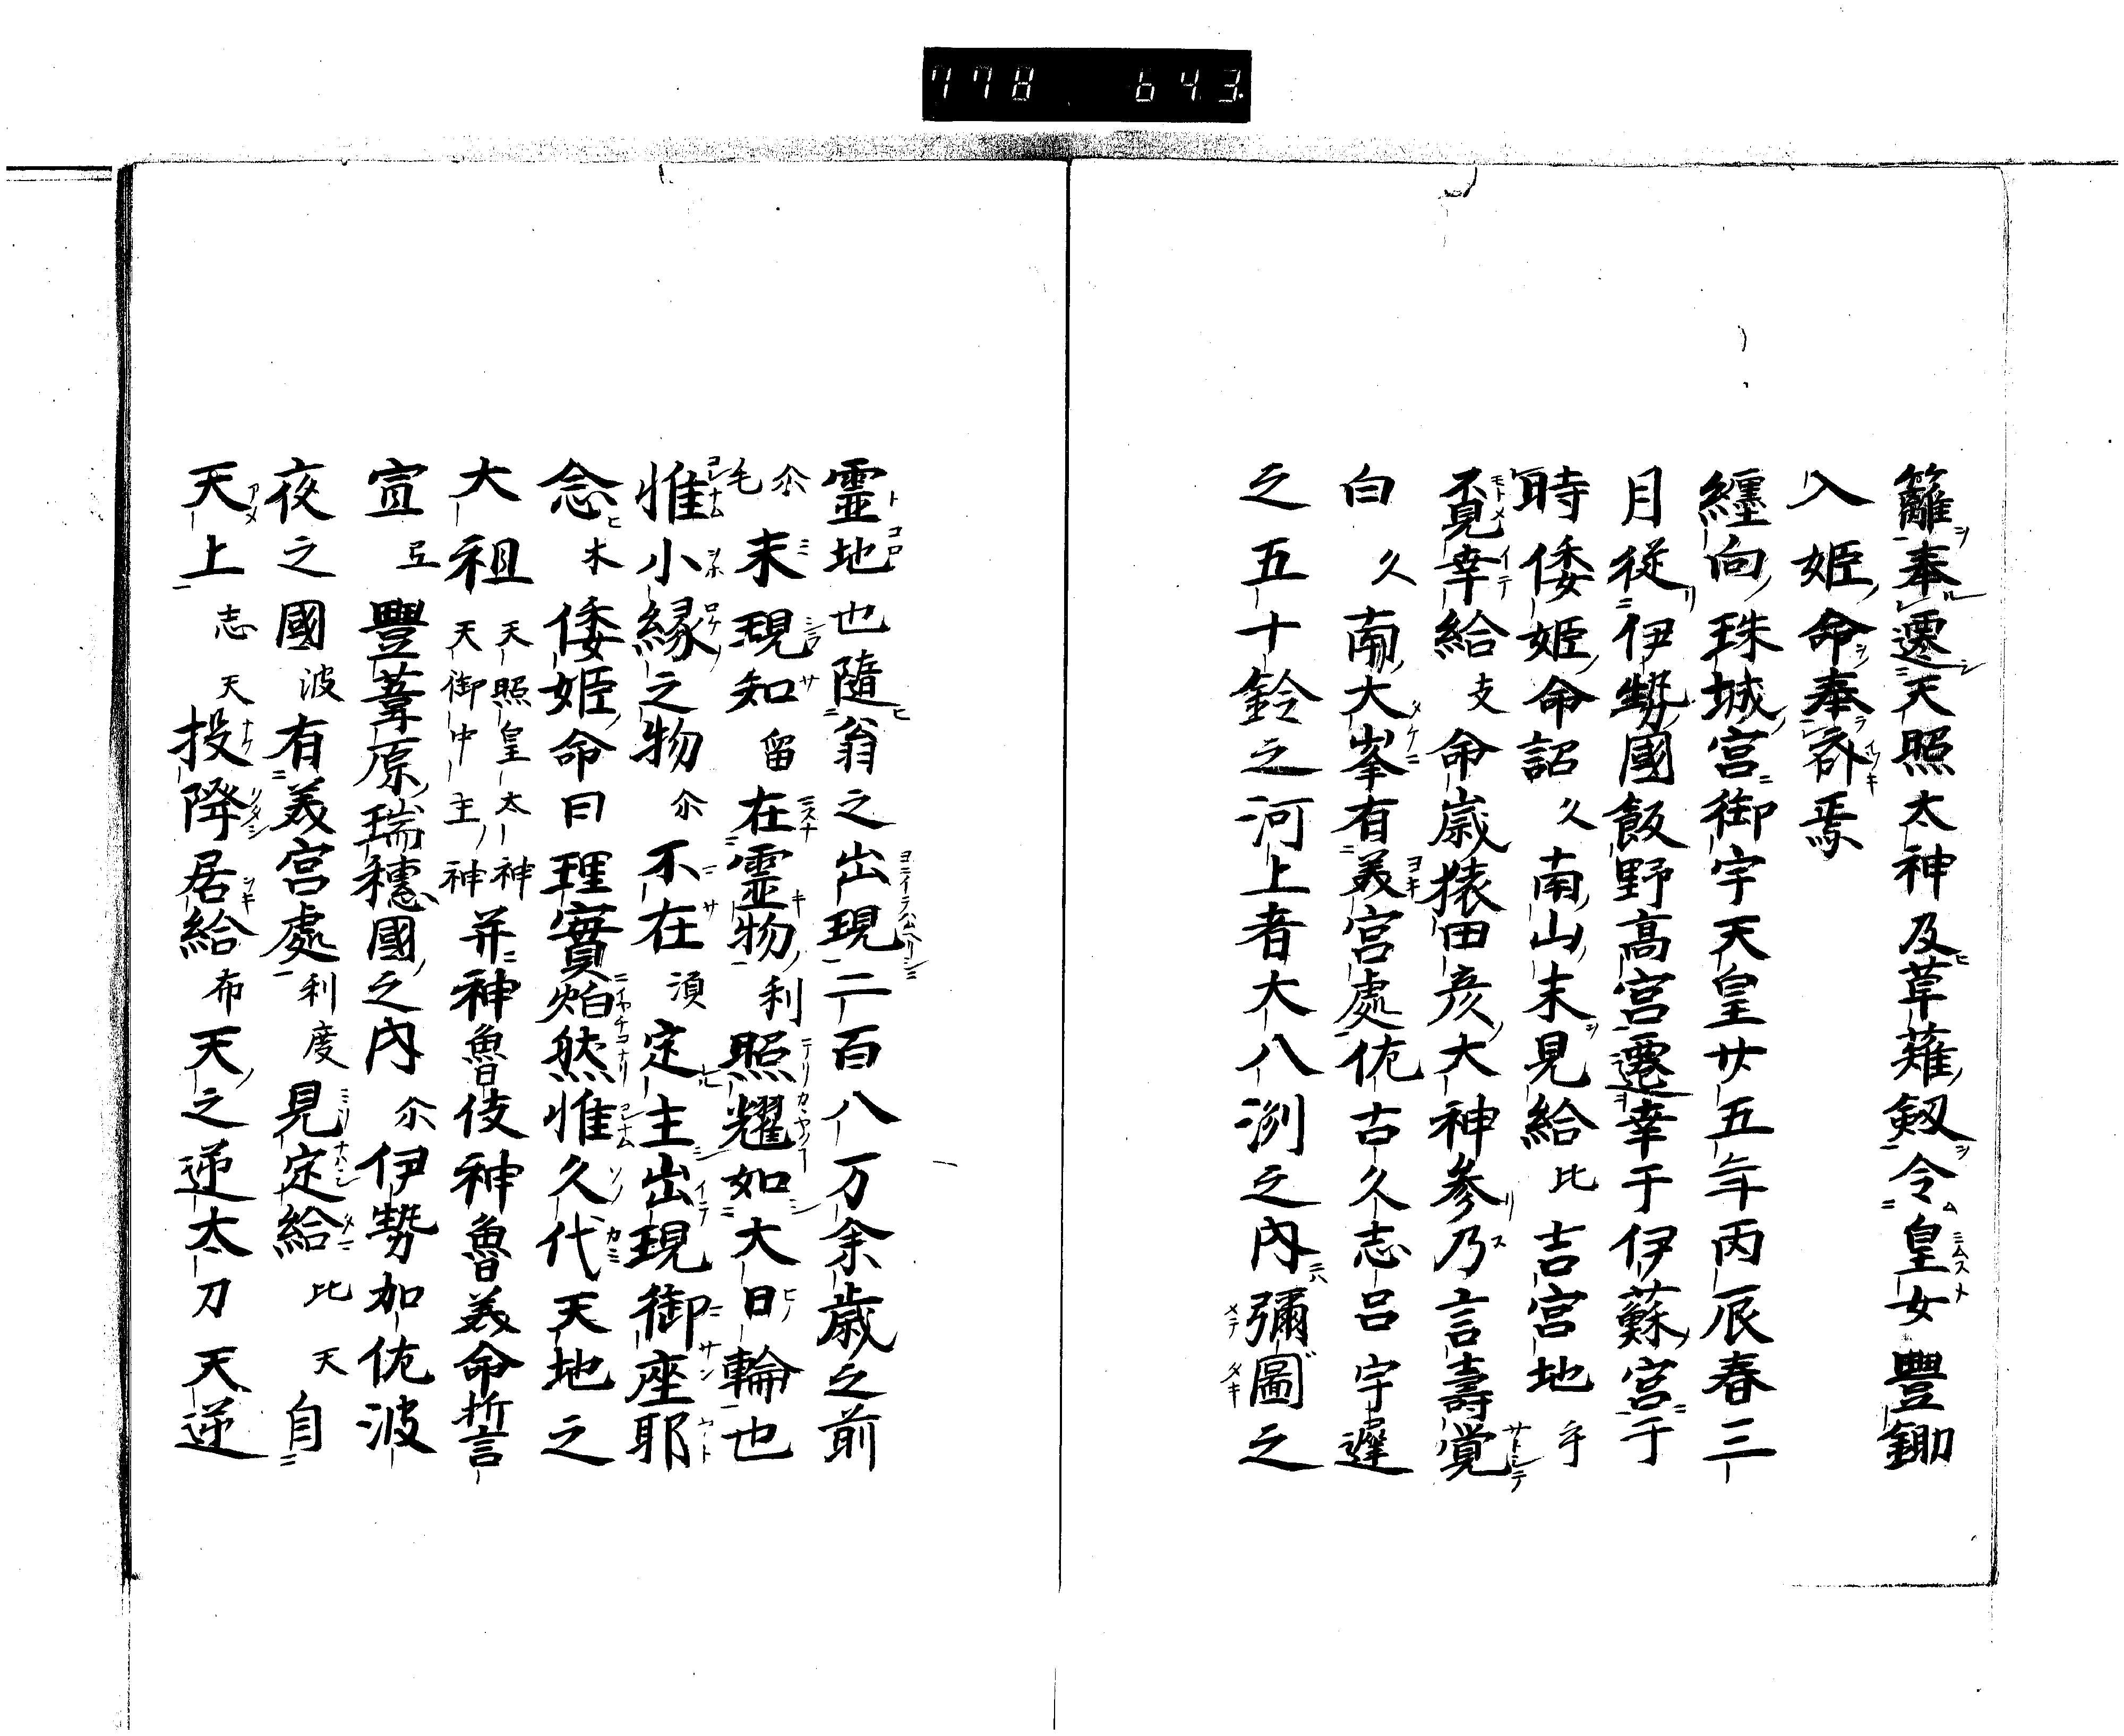 778 643
籬奉遷天照太神及草薙釼令皇女豐鋤
入姫命奉斎焉
纏向珠城宮御宇天皇廿五年丙辰春三
月従伊勢國飯野髙宮遷幸于伊蘇宮于
時倭姫命詔久南山末見給比吉宮地乎
覓幸給支命嵗猿田彦大神参乃言壽覚
白久南大峯有美宮處佐古久志呂宇遅
之五十鈴之河上者大八洲之内彌圖之
霊地也隨翁之出現二百八万余歳之前
尒毛未現知留在霊物利照耀如大日輪也
惟小縁之物尒不在湏定主出現御座耶
念木倭姫命曰理實焔然惟久代天地之
大祖天照皇太神天御中主神并神魯伎神魯美命誓
宣弖豐葦原瑞穗國之内尒伊勢加佐波
夜之國波有美宮處利度見定給比天自
天上志天投降居給布天之逆太刀天逆